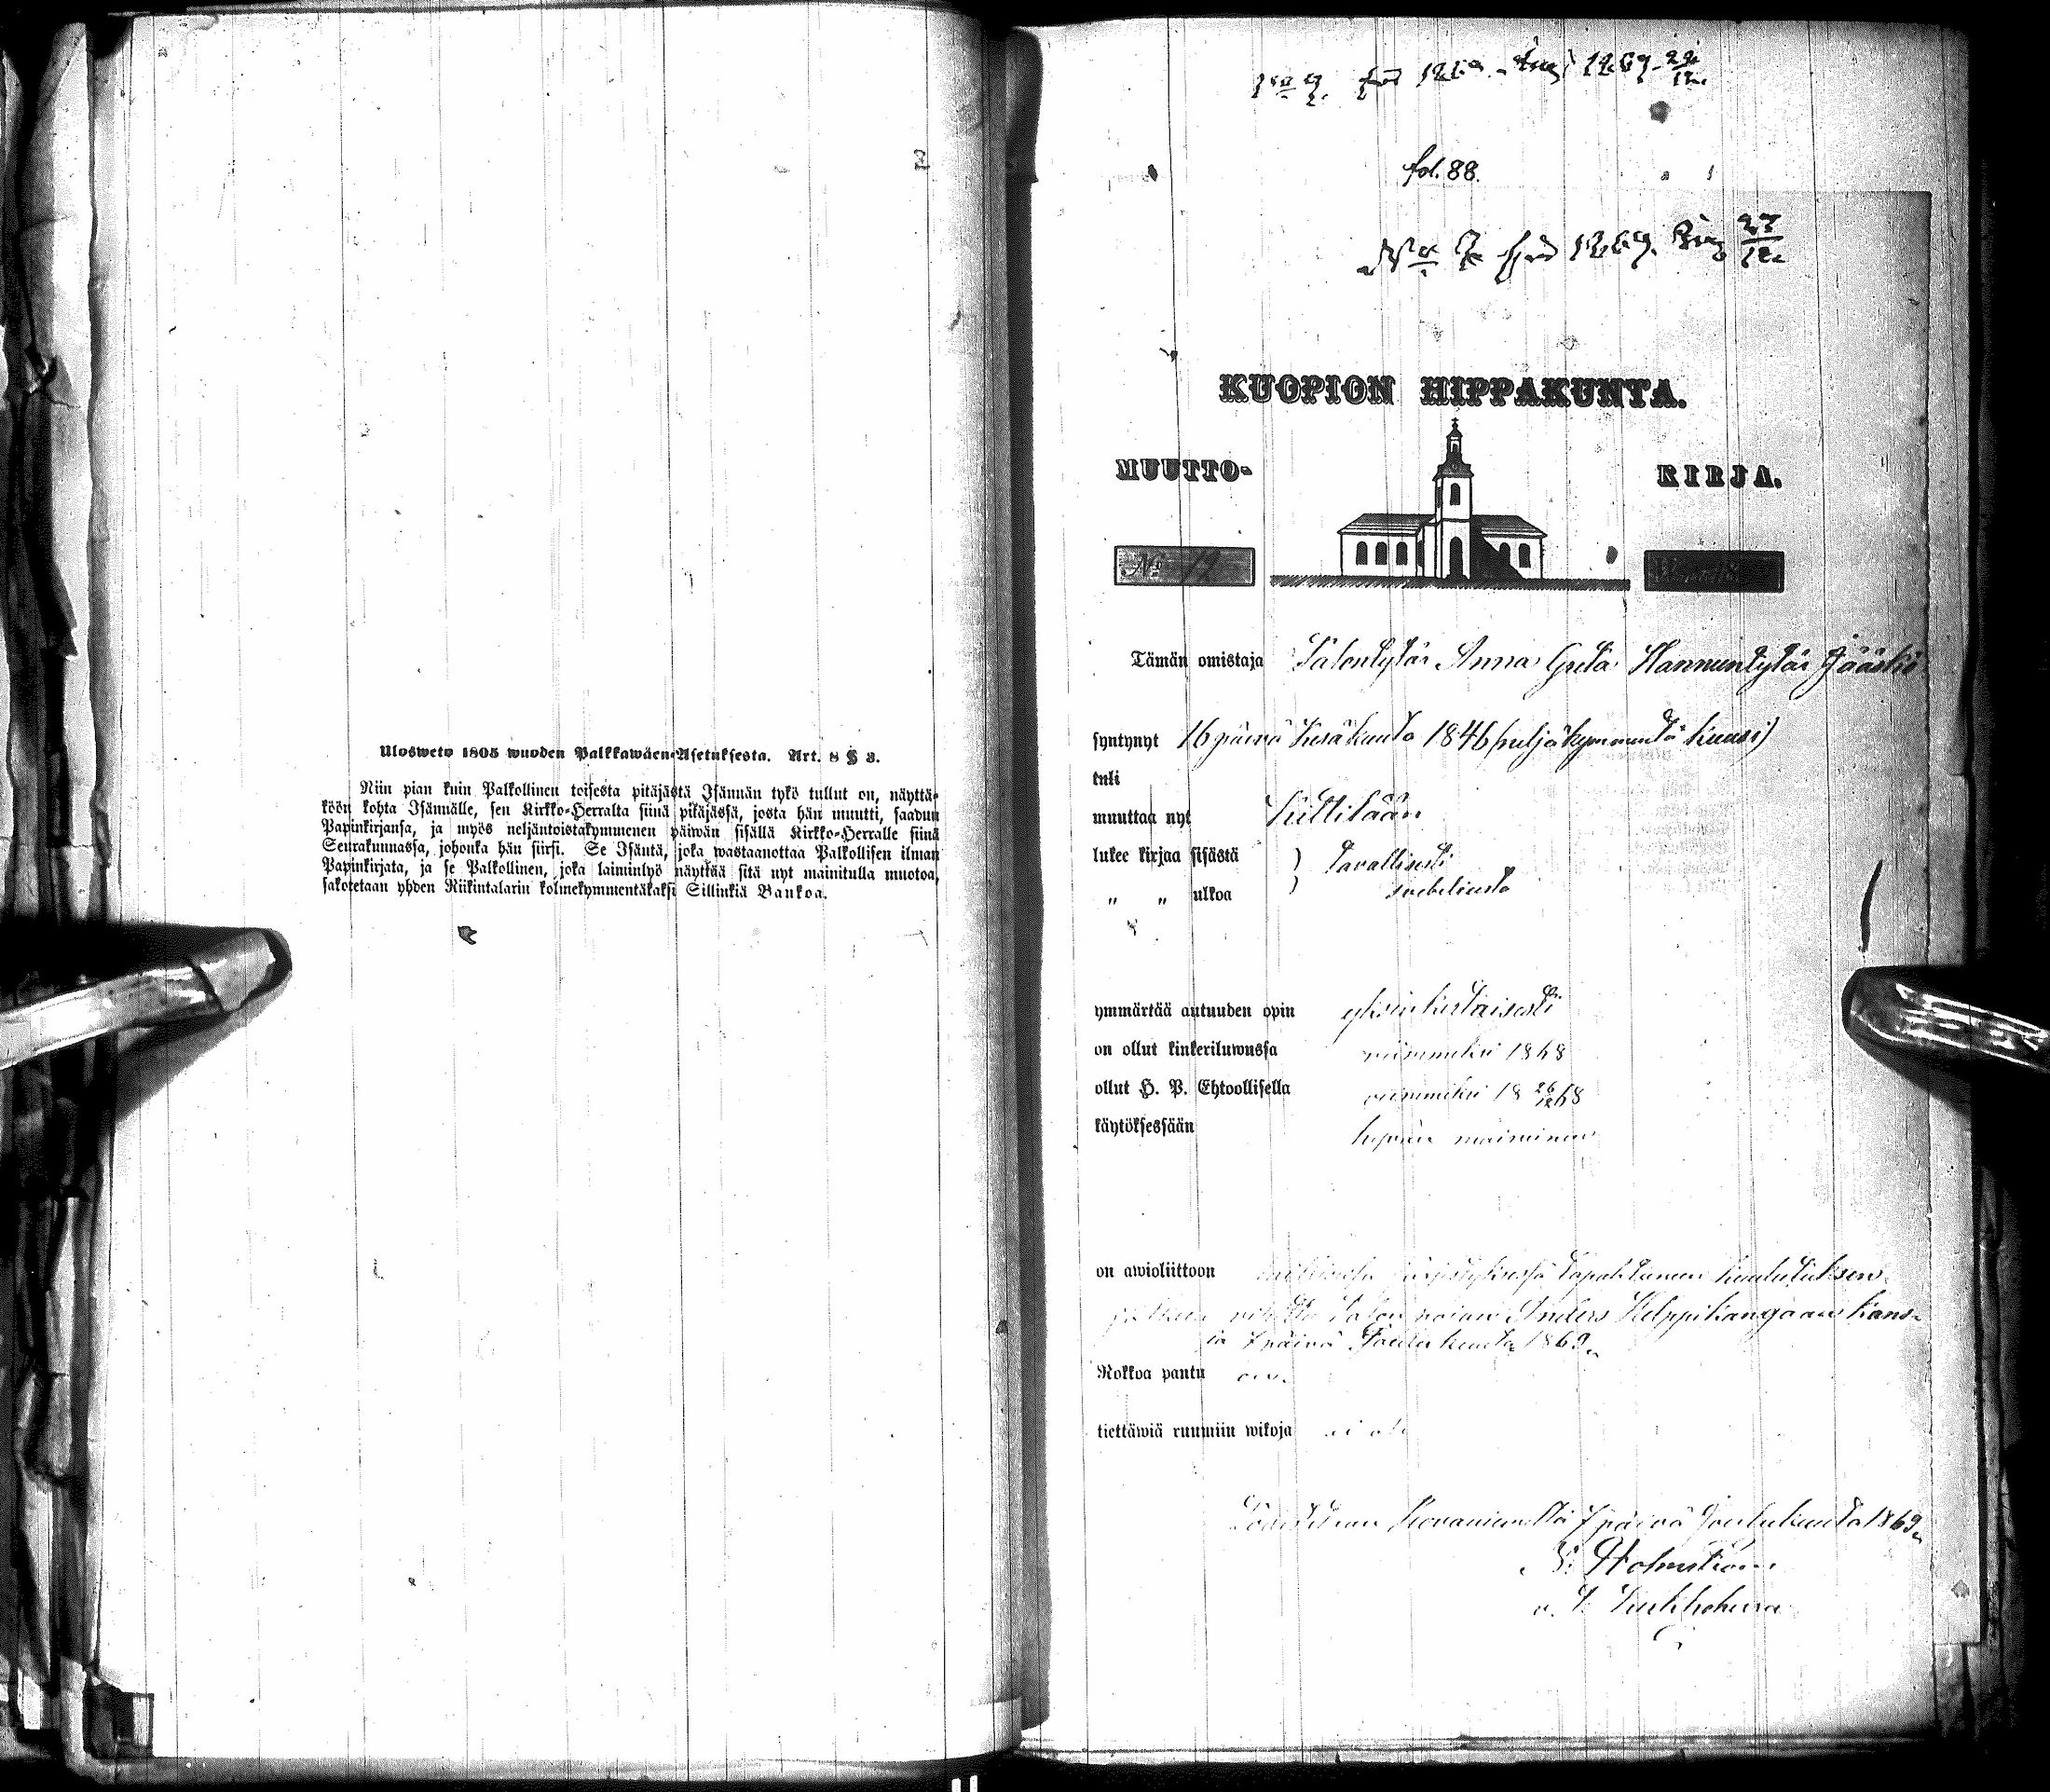 Ulosweto 1805 wuoden Palkkawäen-Asetuksesta. Art. 8 § 3.
Niin pian kuin Palkollinen toisesta pitäjästä Isännän tykö tullut on, näyttä-
köön kohta Isännälle, sen Kirkko-Herralta siinä pitäjässä, josta hän muutti, saadun
Papinkirjansa, ja myös neljäntoistakymmenen päiwän sisällä Kirkko-Herralle siinä
Seurakunnassa, johonka hän siirsi. Se Isäntä, joka wastaanottaa Palkollisen ilman
Papinkirjata, ja se Palkollinen, joka laiminlyö näyttää sitä nyt mainitulla muotoa,
sakotetaan yhden Riikintalarin kolmekymmentäkaksi Sillinkiä Bankoa.
1869
fol. 88.
1869. 27/12.
KUOPION HIPPAKUNTA.
MUUTTO- KIRJA.
No 12
Tämän omistaja Talontytär Anna Greta Hannuntytär Jääskö
syntynyt 16 päivä Kesäkuuta 1846 (neljäkymmentä kuusi)
tuli
muuttaa nyt Kittilään
lukee kirjaa sisästä } tavallisesti
" " ulkoa }
ymmärtää autuuden opin yksinkertaisesti
on ollut kinkeriluwussa viimmeksi 1868
ollut H. P. Ehtoollisella viimmeksi 18 26/12 68
käytöksessään hyvin maininnu
on awioliittoon tapahtuneen kuulutuksen
jälkeen vihitty Talon pojan Anders Helppikangaan kans-
sa 7 päivä Joulukuuta 1869.
Rokkoa pantu on.
tiettäwiä ruumiin wikoja ei ole
Rovaniemellä 7 päivä Joulukuuta 1869.
Holmström
v. t. Kirkkoherra